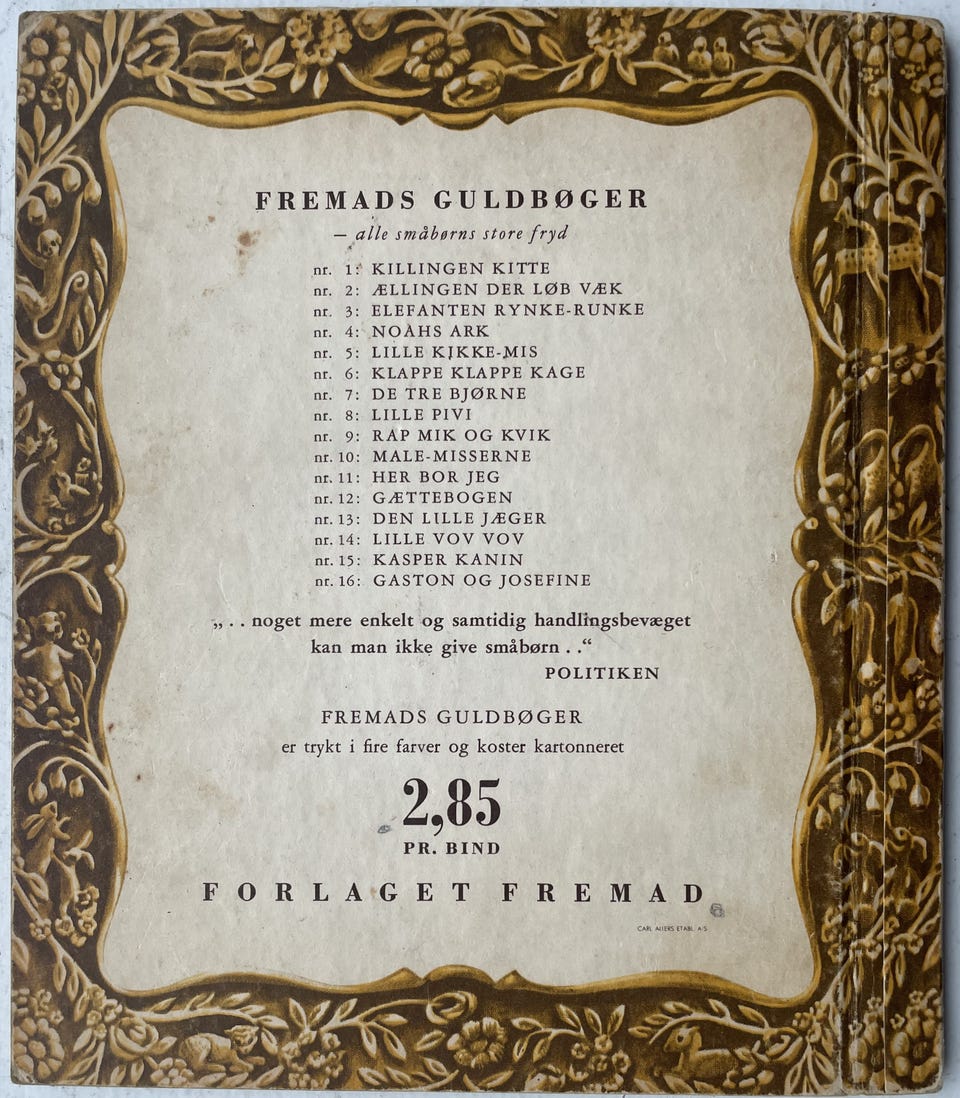 FREMADS GULDBØGER
– alle småbørns store fryd
nr. 1: KILLINGEN KITTE
nr. 2: ÆLLINGEN DER LØB VÆK
nr. 3: ELEFANTEN RYNKE-RUNKE
nr. 4: NOAHS ARK
nr. 5: LILLE KIKKE-MIS
nr. 6: KLAPPE KLAPPE KAGE
nr. 7: DE TRE BJØRNE
nr. 8: LILLE PIVI
nr. 9: RAP MIK OG KVIK
nr. 10: MALE-MISSERNE
nr. 11: HER BOR JEG
nr. 12: GÆTTEBOGEN
nr. 13: DEN LILLE JÆGER
nr. 14: LILLE VOV VOV
nr. 15: KASPER KANIN
nr. 16: GASTON OG JOSEFINE
„. . noget mere enkelt og samtidig handlingsbevæget
kan man ikke give småbørn . .“
POLITIKEN
FREMADS GULDBØGER
er trykt i fire farver og koster kartonneret
2,85
PR. BIND
FORLAGET FREMAD
CARL ALLERS ETABL. A/S